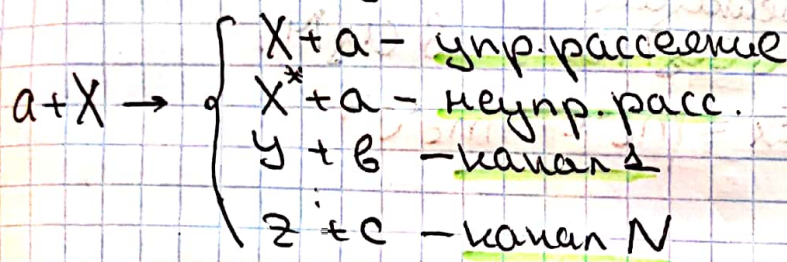 X + a - упр. рассеяние
a + X → X* + a - неупр. расс.
y + в - канал 1
z + c - канал N